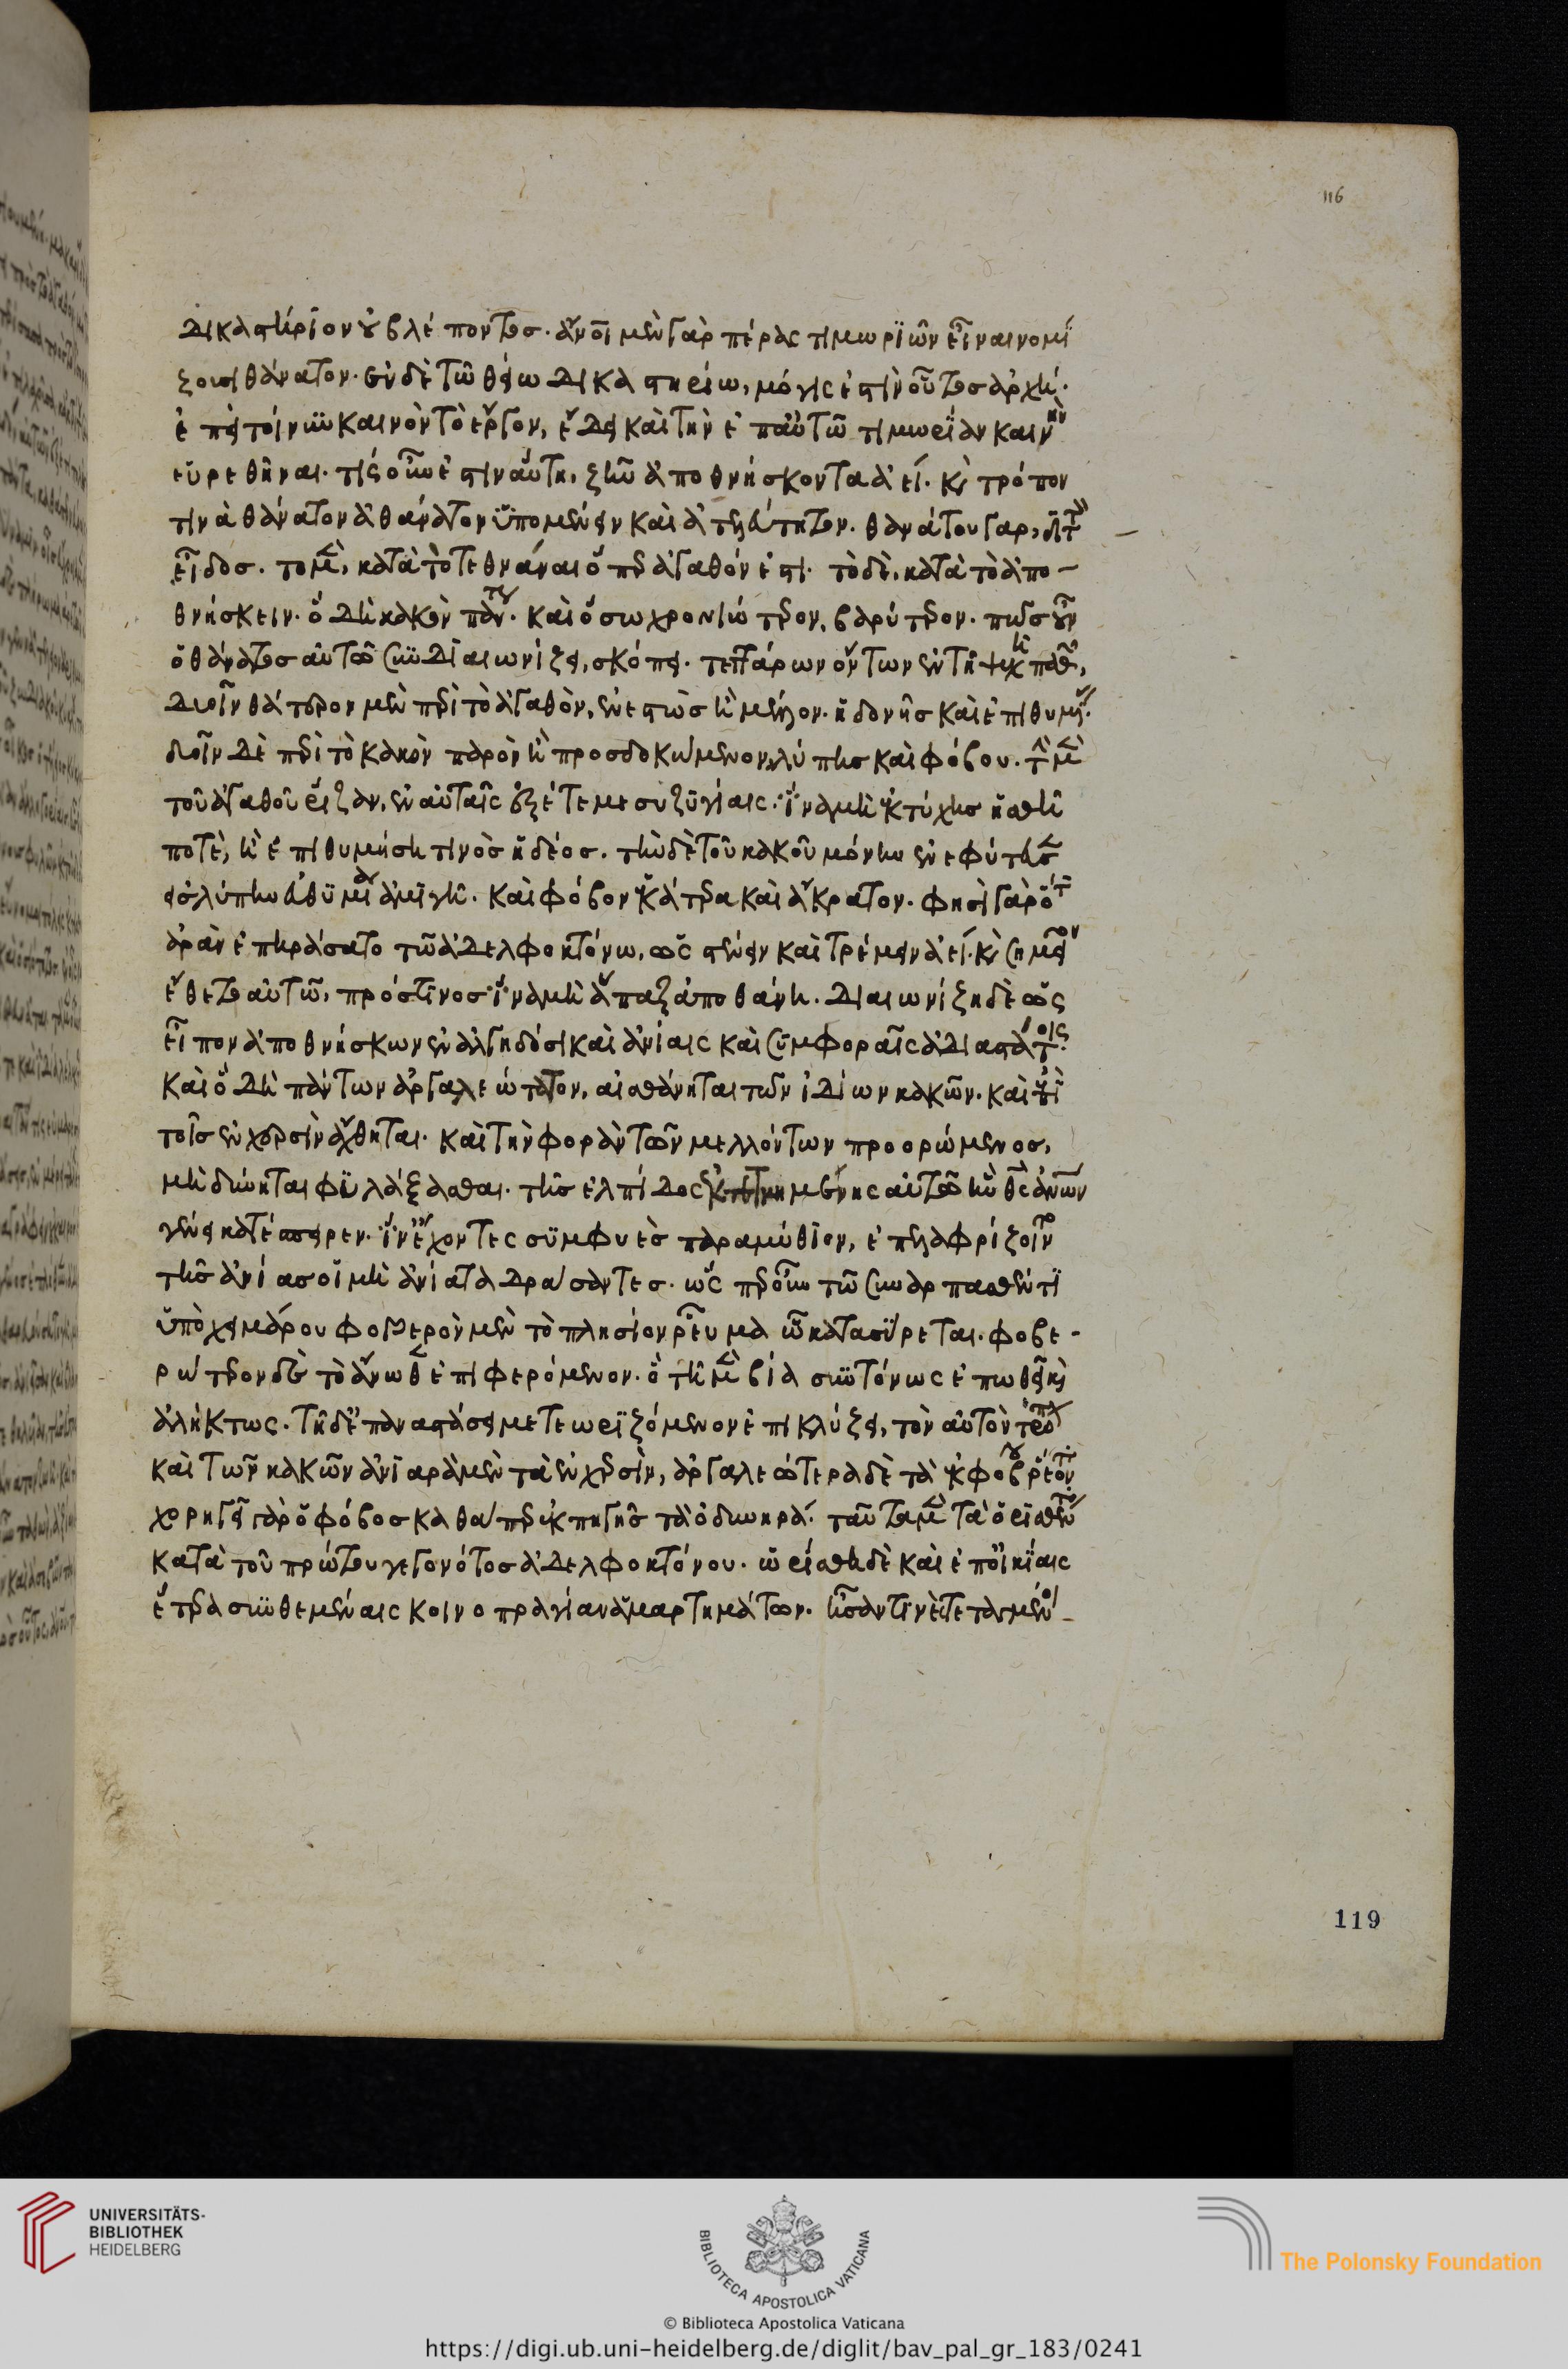 δικαστήριον οὐ βλέποντες. ἄνοι μὲν γὰρ πέρας τιμωριῶν εἶναι νομί
ζουσι θάνατον. ἐν δὲ τῶ θείω δικαστηρίω, μόγις ἐστὶν οὗτος ἀρχή.
ἐπεὶ τοίνυν καινὸν τὸ ἔργον, ἔδει καὶ τὴν ἐπ' αὐτῶ τιμωρίαν καινὴν
εὑρεθῆναι. τίς οὖν ἐστιν αὕτη, ζῆν ἀποθνήσκοντα ἀεί. καὶ τρόπον
τινὰ θάνατον ἀθάνατον ὑπομένειν καὶ ἀτελεύτητον. θανάτου γὰρ, διττὸν
εἶδος. τὸ μὲν, κατὰ τὸ τεθνάναι ὅπερ ἀγαθόν ἐστι. τὸ δὲ, κατὰ τὸ ἀπο-
θνήσκειν. ὃ δὴ κακὸν πάντως. καὶ ὅσω χρονιώτερον, βαρύτερον. πῶς οὖν
ὁ θάνατος αὐτῶ συνδιαιωνίζει, σκόπει. τεττάρων ὄντων ἐν τῆ ψυχῆ παθῶν,
δυοῖν θάτερον μὲν περὶ τὸ ἀγαθὸν, ἐνεστὼς ἢ μέλλον. ἡδονῆς καὶ ἐπιθυμίας.
δυοῖν δὲ περὶ τὸ κακὸν παρὸν ἢ προσδοκώμενον, λύπης καὶ φόβου. τὴν μὲν
τοῦ ἀγαθοῦ ῥίζαν, ἐν αὐταῖς ἐξέτεμε συζυγίαις. ἵνα μὴ ἐκ τύχης ἡσθῆ
ποτὲ, ἢ ἐπιθυμήση τινὸς ἡδέος. τὴν δὲ τοῦ κακοῦ μόνην ἐνεφύτευσεν
εἰς λύπην εὐθυμίαν ἀμιγῆ. καὶ φόβον οὐ μέτρα καὶ ἄκρατον. φησὶ γὰρ ὅτι
ἀρὰν ἐπηράσατο τῶ ἀδελφοκτόνω, ὡς στένειν καὶ τρέμειν ἀεί. καὶ σημεῖον
ἔθετο αὐτῶ, πρός τινος ἵνα μὴ ἅπαξ ἀποθάνη. διαιωνίζη δὲ ὡς
εἶπον ἀποθνήσκων ἐν ἀλγηδόσι καὶ ἀνίαις καὶ συμφοραῖς ἀδιαστάτοις.
καὶ ὃ δὴ πάντων ἀργαλεώτατον, αἰσθάνηται τῶν ἰδίων κακῶν. καὶ ἐπὶ
τοῖς ἐν χερσὶν ἄχθηται. καὶ τὴν φορὰν τῶν μελλόντων προορώμενος,
μὴ δύνηται φυλάξασθαι. τῆς ἐλπίδος ἐκτετμημένης αὐτῶ ἣν θεὸς ἀνων
γένει κατέσπειρεν. ἵν' ἔχοντες συμφυὲς παραμύθιον, ἐπελαφρίζοιντο
τῆς ἀνίας οἱ μὴ ἀνίατα δράσαντες. ὥσπερ οὖν τῶ συναρπασθέντι
ὑπὸ χειμάρρου φοβερὸν μὲν τὸ πλησίον ῥεῦμα ὧ κατασύρεται. φοβε-
ρώτερον δὲ τὸ ἄνωθεν ἐπιφερόμενον. ὃ τῆ μὲν βία συντόνως ἐπωθεῖ καὶ
ἀλήκτως. τῆ δὲ παναστάσει μετεωριζόμενον ἐπικλύζει, τὸν αὐτὸν τρόπον
καὶ τῶν κακῶν ἀνιαρὰ μὲν τὰ ἐν χερσὶν, ἀργαλεώτερα δὲ τὰ ἐκ φόβου ῥέοντα.
χορηγεῖ γὰρ ὁ φόβος καθάπερ ἐκ πηγῆς τὰ ὀδυνηρά. ταῦτα μὲν τὰ ὁρισθέντα
κατὰ τοῦ πρώτου γεγονότος ἀδελφοκτόνου. ὥρισθη δὲ καὶ ἐπ' οἰκίαις
ἕτερα συνθεμέναις κοινοπραγίαν ἁμαρτημάτων. ἦσάν τινες τεταγμένοι
116
119
UNIVERSITÄTS-
BIBLIOTHEK
HEIDELBERG
BIBLIOTECA APOSTOLICA VATICANA
The Polonsky Foundation
© Biblioteca Apostolica Vaticana
https://digi.ub.uni-heidelberg.de/diglit/bav_pal_gr_183/0241